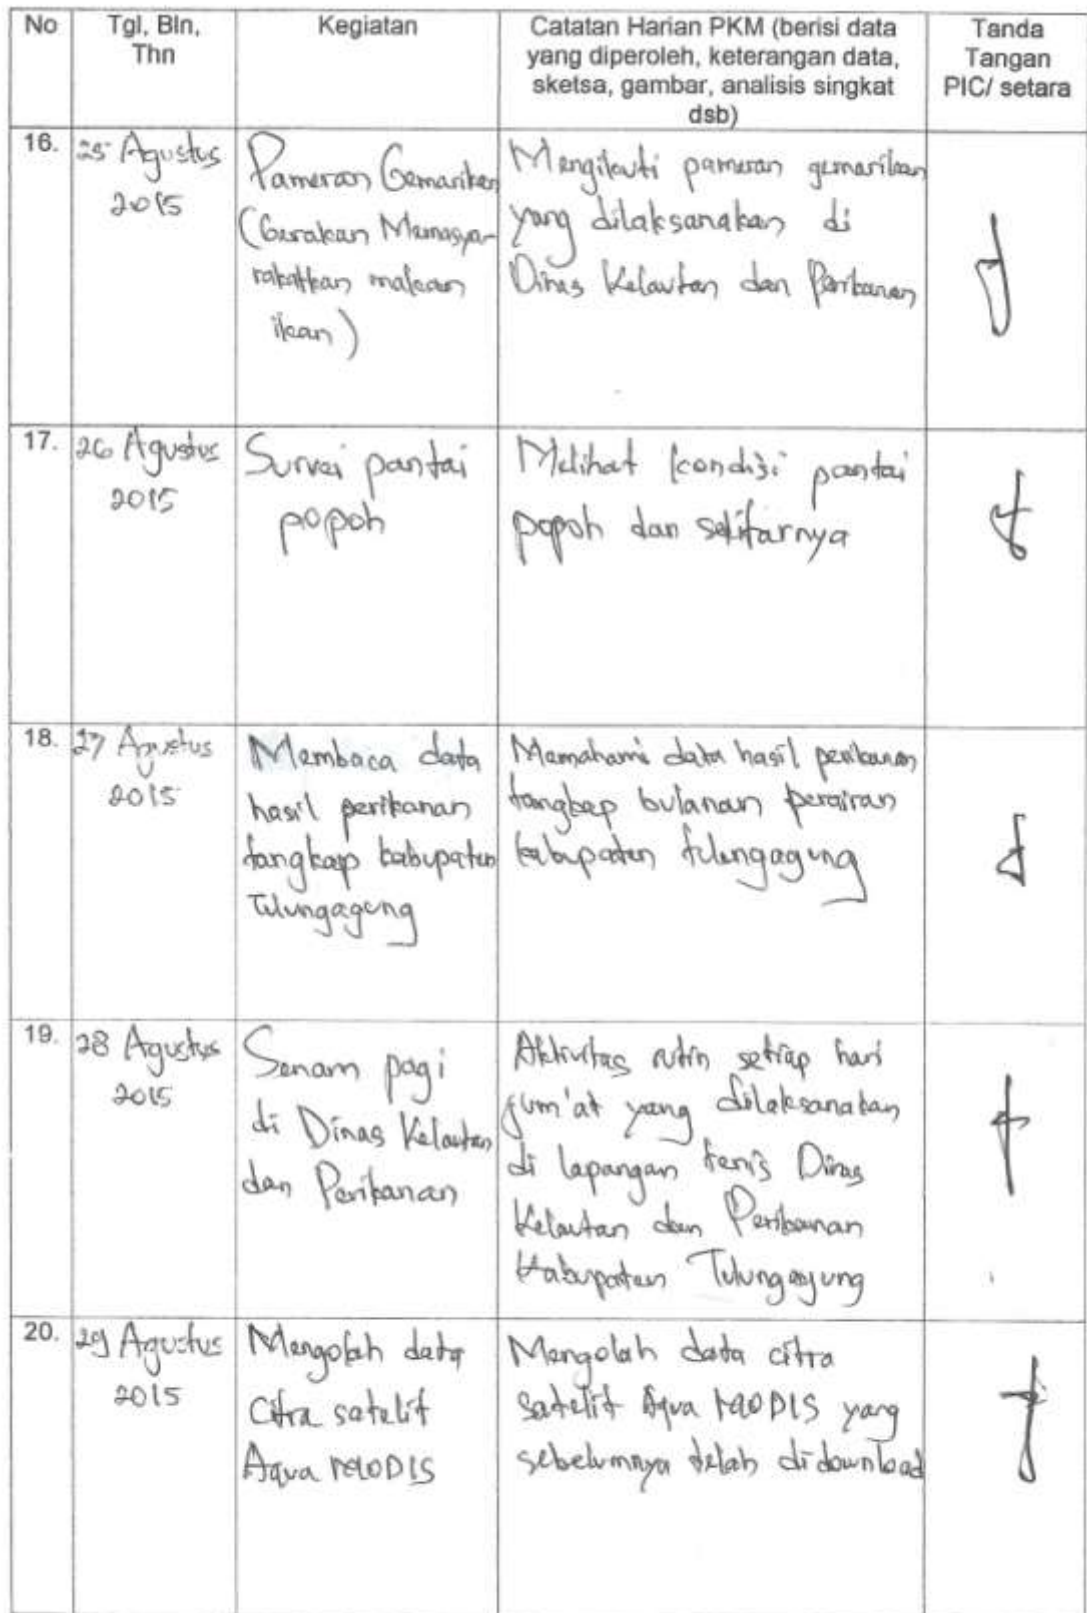 No
Tgl, Bln,
Thn
Kegiatan
Catatan Harian PKM (berisi data
yang diperoleh, keterangan data,
sketsa, gambar, analisis singkat
dsb)
Tanda
Tangan
PIC/ setara
16.
25 Agustus
2015
Pameran Gemarikan
(Gerakan Memasya-
rakatkan makan
ikan)
Mengikuti pameran gemarikan
yang dilaksanakan di
Dinas Kelautan dan Perikanan
17.
26 Agustus
2015
Survei pantai
popoh
Melihat kondisi pantai
popoh dan sekitarnya
18.
27 Agustus
2015
Membaca data
hasil perikanan
tangkap kabupaten
Tulungagung
Memahami data hasil perikanan
tangkap bulanan perairan
kabupaten tulungagung
19.
28 Agustus
2015
Senam pagi
di Dinas Kelautan
dan Perikanan
Aktivitas rutin setiap hari
jum'at yang dilaksanakan
di lapangan tenis Dinas
Kelautan dan Perikanan
Kabupaten Tulungagung
20.
29 Agustus
2015
Mengolah data
Citra satelit
Aqua MODIS
Mengolah data citra
satelit Aqua MODIS yang
sebelumnya telah didownload